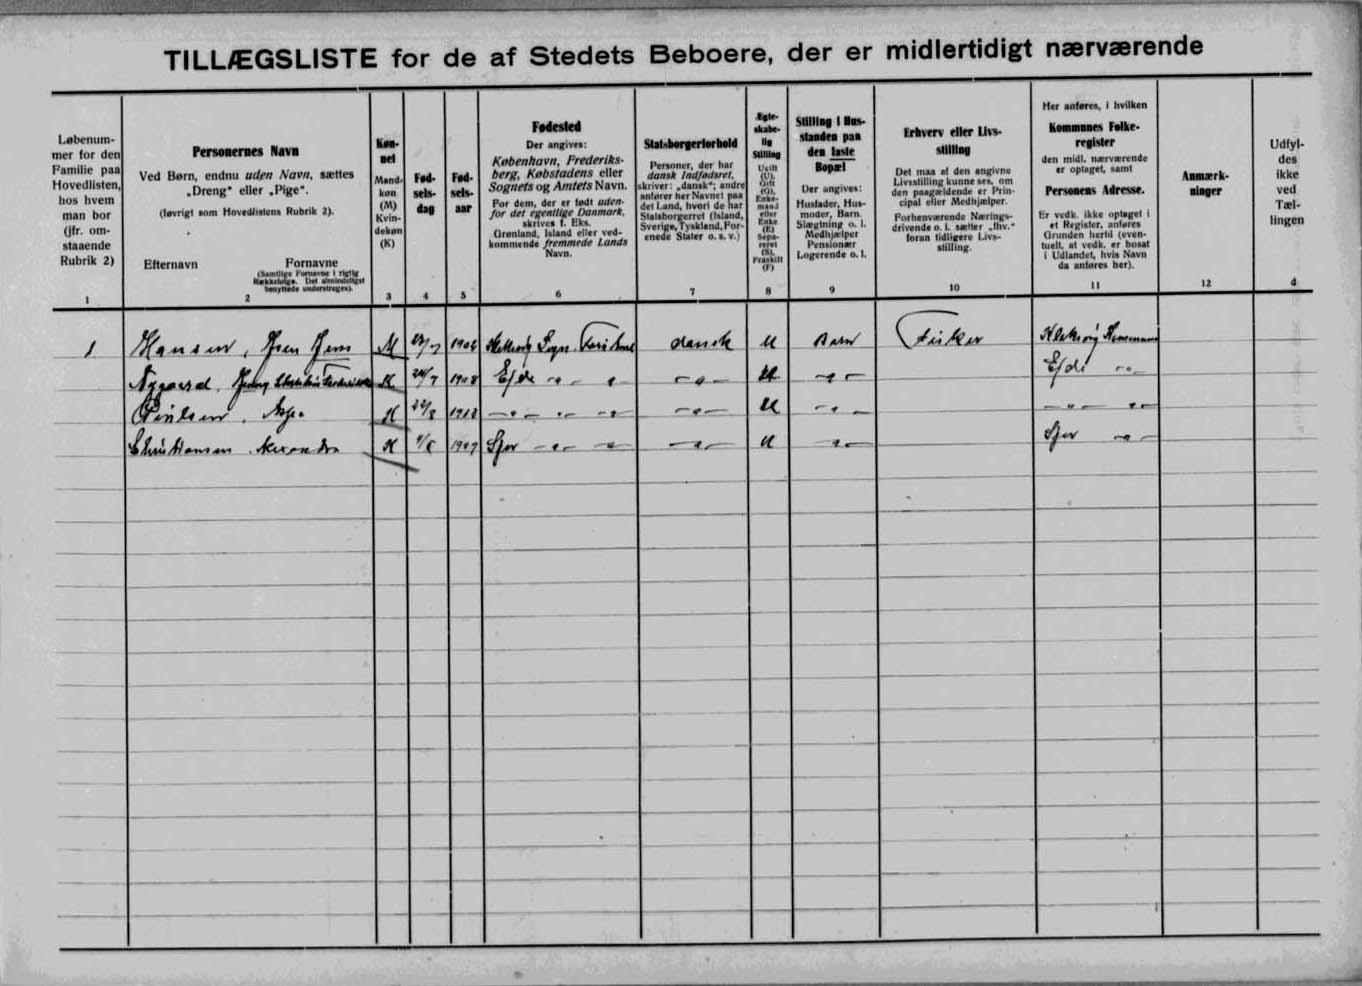 TILLÆGSLISTE for de af Stedets Beboere, der er midlertidigt nærværende
Løbenum-
mer for den
Familie paa
Hovedlisten,
hos hvem
man bor
(jfr. om-
staaende
Rubrik 2)
1
Personernes Navn
Ved Børn, endnu uden Navn, sættes
„Dreng" eller „Pige".
(Iøvrigt som Hovedlistens Rubrik 2).
Efternavn Fornavne
(Samtlige Fornavne i rigtig
Rækkefølge. Det almindeligst
benyttede understreges).
2
Køn-
net
Mand-
køn
(M)
Kvin-
dekøn
(K)
3
Fød-
sels-
dag
4
Fød-
sels-
aar
5
Fødested
Der angives:
København, Frederiks-
berg, Købstadens eller
Sognets og Amtets Navn.
For dem, der er født uden-
for det egentlige Danmark,
skrives f. Eks.
Grønland, Island eller ved-
kommende fremmede Lands
Navn.
6
Statsborgerforhold
Personer, der har
dansk Indfødsret,
skriver: „dansk"; andre
anfører her Navnet paa
det Land, hvori de har
Statsborgerret (Island,
Sverige, Tyskland, For-
enede Stater o. s. v.)
7
Ægte-
skabe-
lig
Stilling
Ugift
(U),
Gift
(G),
Enke-
mand
eller
Enke
(E)
Sepa-
reret
(S),
Fraskilt
(F)
8
Stilling i Hus-
standen paa
den faste
Bopæl
Der angives:
Husfader, Hus-
moder, Barn.
Slægtning o. l.
Medhjælper
Pensionær
Logerende o. l.
9
Erhverv eller Livs-
stilling
Det maa af den angivne
Livsstilling kunne ses, om
den paagældende er Prin-
cipal eller Medhjælper.
Forhenværende Nærings-
drivende o. l. sætter „fhv."
foran tidligere Livs-
stilling.
10
Her anføres, i hvilken
Kommunes Folke-
register
den midl. nærværende
er optaget, samt
Personens Adresse.
Er vedk. ikke optaget i
et Register, anføres
Grunden hertil (even-
tuelt, at vedk. er bosat
i Udlandet, hvis Navn
da anføres her).
11
Anmærk-
ninger
12
Udfyl-
des
ikke
ved
Tæl-
lingen
d
1 Hansen, Jens M 1904 Sogn dansk U Barn Fisker
Nygaard, K 24/7 1908 Ejde -"- -"- -"- U -"- Ejde -"-
K 22/8 1913 -"- -"- -"- -"- U -"- -"- -"-
Christiansen K 1/8 1907 -"- -"- -"- U -"- -"-